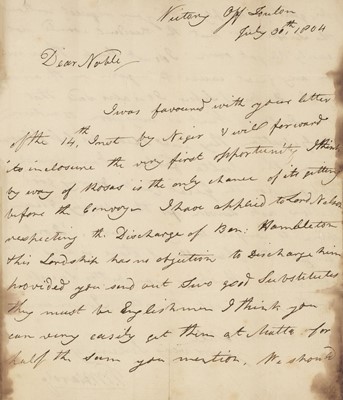 Victory Off Toulon
July 30th, 1804
Dear Noble,
I was favoured with your letter
of the 14th Inst by Niger I will forward
its inclosure the very first opportunity, I think
by way of Rosas is the only chance of its getting
before the Convoy – I have applied to Lord Nelson
respecting the Discharge of Ben: Hambleton
His Lordship has no objection to Discharge him
provided you send out two good Substitutes
they must be Englishmen I think you
can very easily get them at Malta for
half the sum you mention, We should